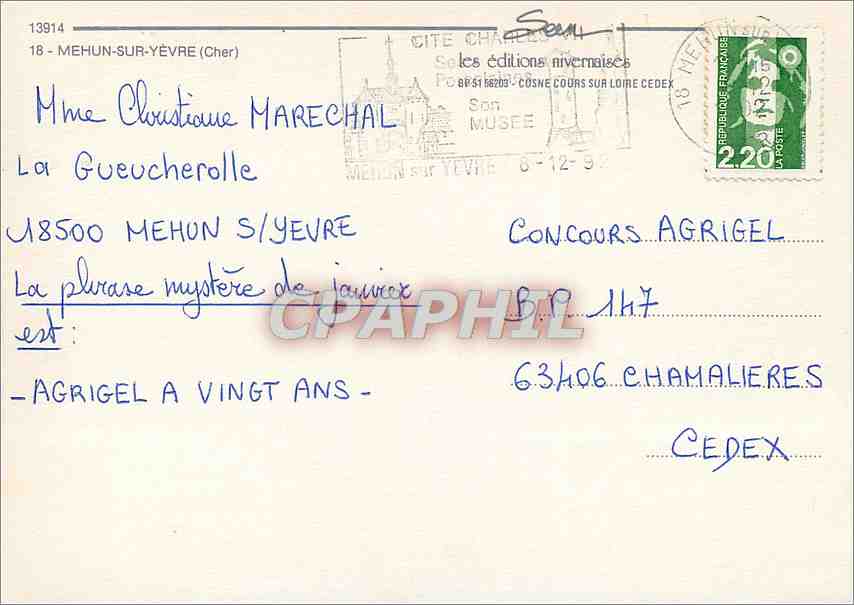 13914
18 - MEHUN-SUR-YÈVRE (Cher)
CITE CHARLES
les éditions nivernaises
BP 51 58203 - COSNE COURS SUR LOIRE CEDEX
Son
MUSEE
MEHUN sur YEVRE 8-12-9
18 MEHUN SUR
REPUBLIQUE FRANÇAISE
2,20
LA POSTE
Mme Christiane MARECHAL
La Gueucherolle
18500 MEHUN S/YEVRE
La phrase mystère de janvier
est :
- AGRIGEL A VINGT ANS -
CONCOURS AGRIGEL
B.P. 147
63406 CHAMALIERES
CEDEX
CPAPHIL